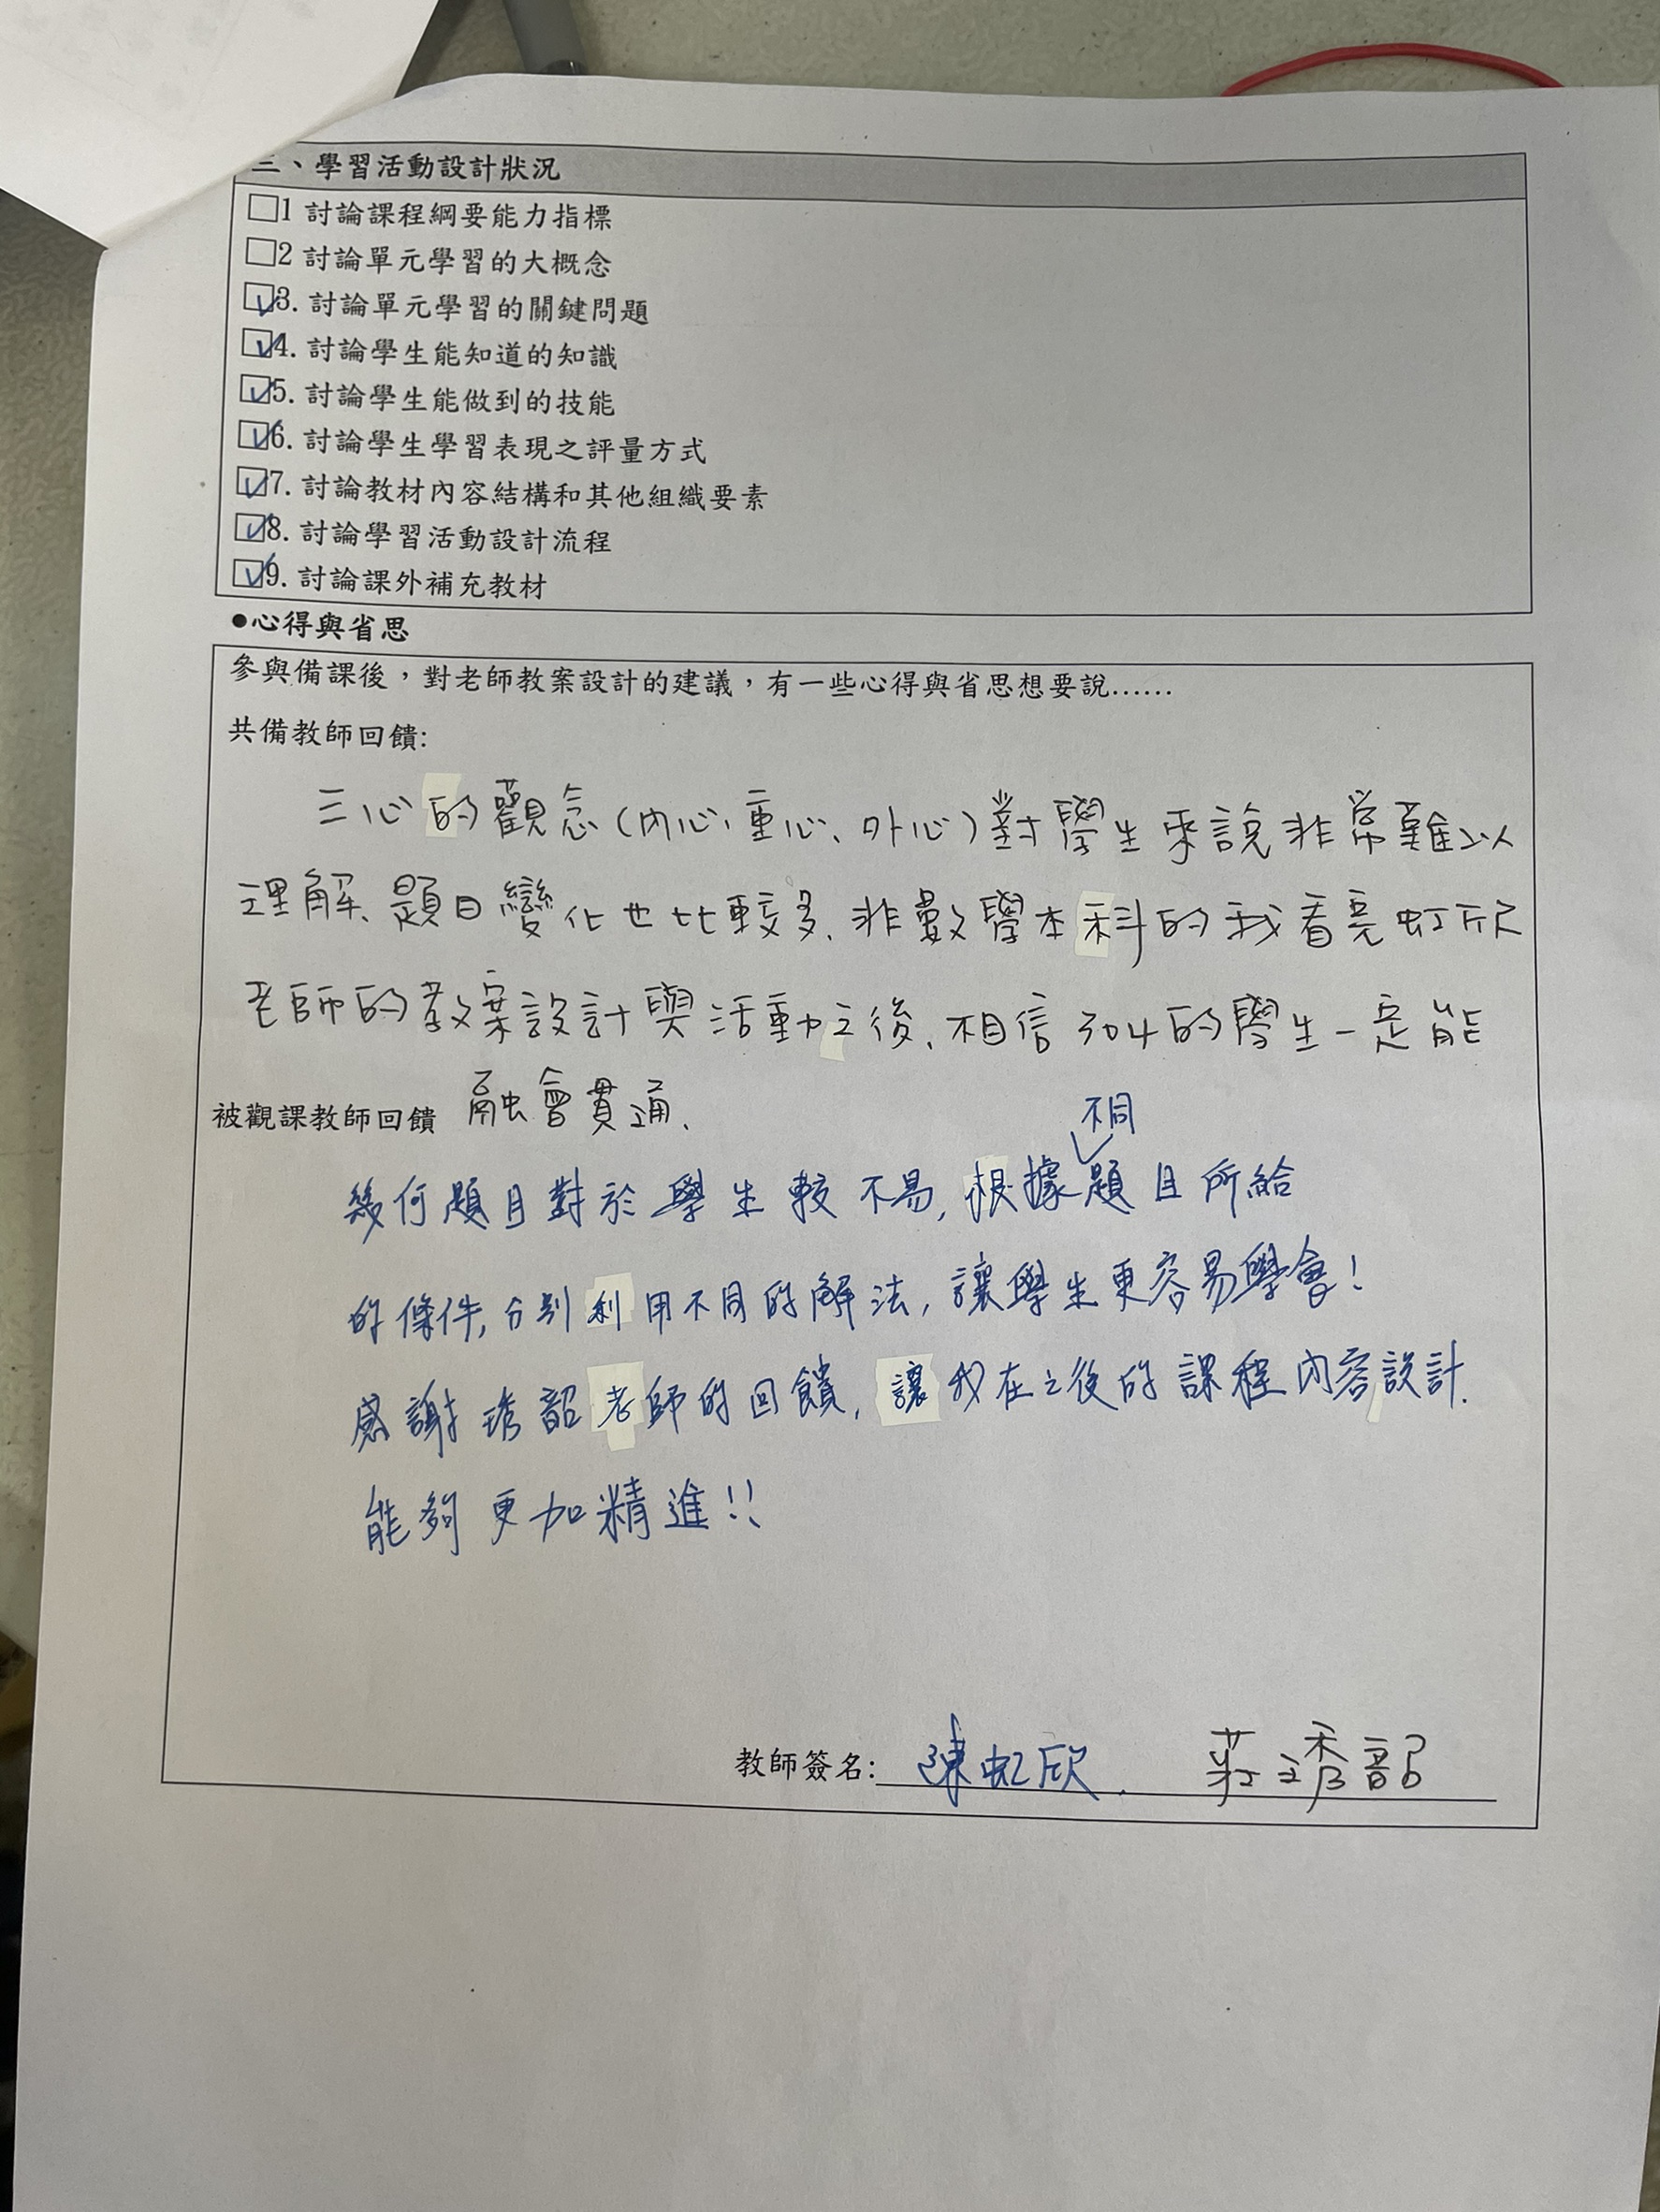 三、學習活動設計狀況
□1 討論課程綱要能力指標
□2 討論單元學習的大概念
☑3. 討論單元學習的關鍵問題
☑4. 討論學生能知道的知識
☑5. 討論學生能做到的技能
☑6. 討論學生學習表現之評量方式
☑7. 討論教材內容結構和其他組織要素
☑8. 討論學習活動設計流程
☑9. 討論課外補充教材
●心得與省思
參與備課後，對老師教案設計的建議，有一些心得與省思想要說……
共備教師回饋:
三心的觀念(內心、重心、外心)對學生來說非常難以
理解、題目變化也比較多、非數學本科的我看完虹欣
老師的教案設計與活動之後、相信304的學生一定能
融會貫通、
被觀課教師回饋
不同
幾何題目對於學生較不易, 根據題目所給
的條件, 分別利用不同的解法, 讓學生更容易學會!
感謝琇韶老師的回饋, 讓我在之後的課程內容設計.
能夠更加精進!!
教師簽名: 陳虹欣. 莊琇韶